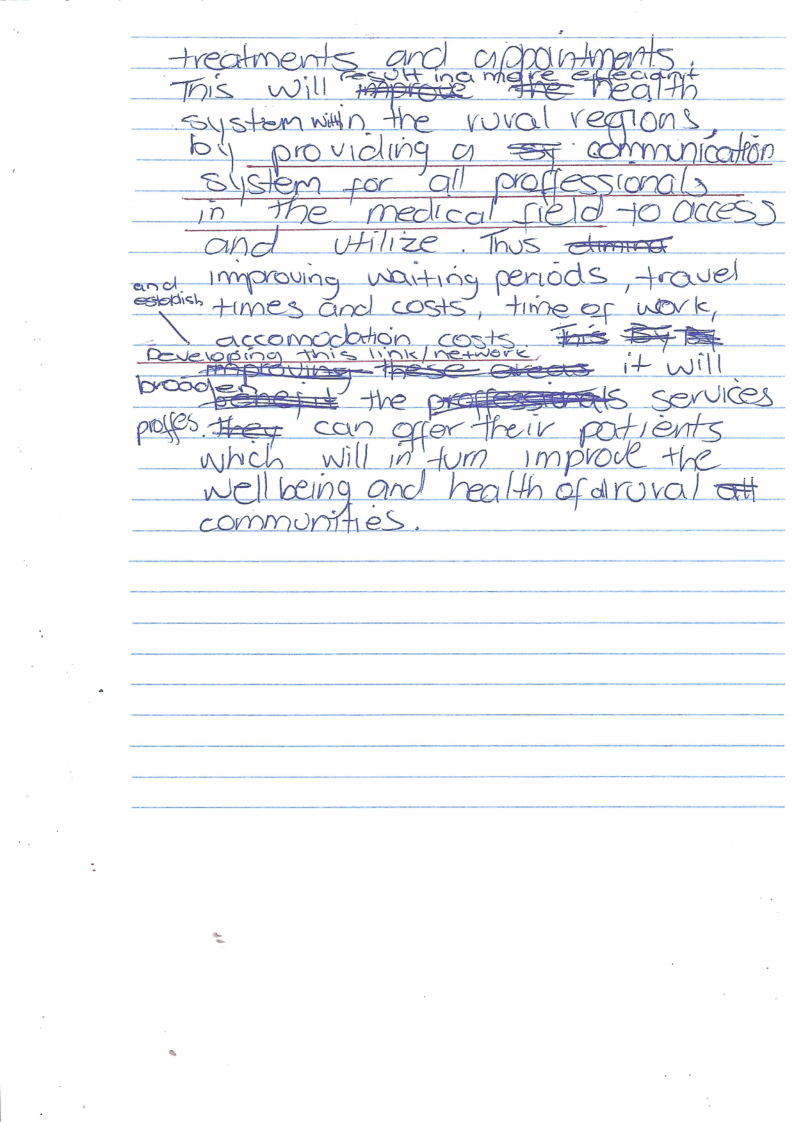 treatments and appointments.
result in a more effeciant
This will improve the health
system within the rural regions,
by providing a sy communication
system for all proffessionals
in the medical field to access
and utilize. Thus
improving waiting periods, travel
and
establish
times and costs, time of work,
accomodation costs. This By
Developing this link/network
improving these areas it will
broaden
benefit the proffessionals services
proffes. they can offer their patients
which will in turn improve the
well being and health of all rural all
communities.